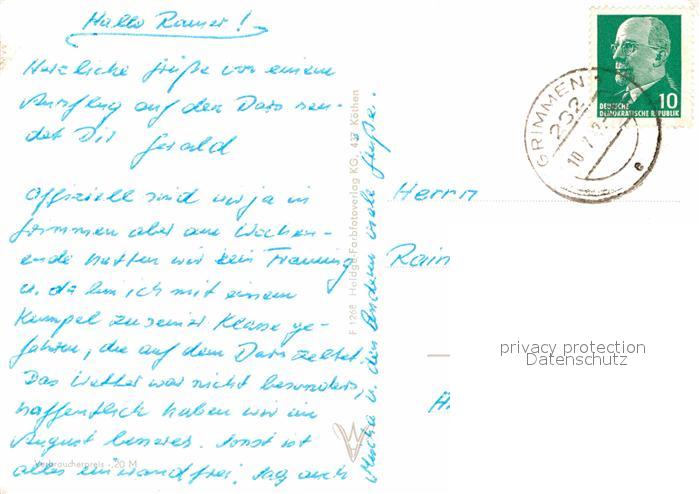 Hallo Rainer!
Herzliche Grüße von einem
Ausflug auf den Dars sen-
det Dir Gerald
Offiziell sind wir ja in
Grimmen aber am Wochen-
ende hatten wir kein Training
u. da bin ich mit einem
Kumpel zu seiner Klasse ge-
fahren, die auf dem Dars zeltet.
Das Wetter war nicht besonders,
hoffentlich haben wir im
August besseres. Sonst ist
alles einwandfrei. Sag auch
Mischa u. den anderen viele Grüße.
Verbraucherpreis -,20 M
F 1268 Heldge-Farbfotoverlag KG, 437 Köthen
GRIMMEN 1
232
10.7.
e
10
DEUTSCHE
DEMOKRATISCHE REPUBLIK
Herrn
Rain
privacy protection
Datenschutz